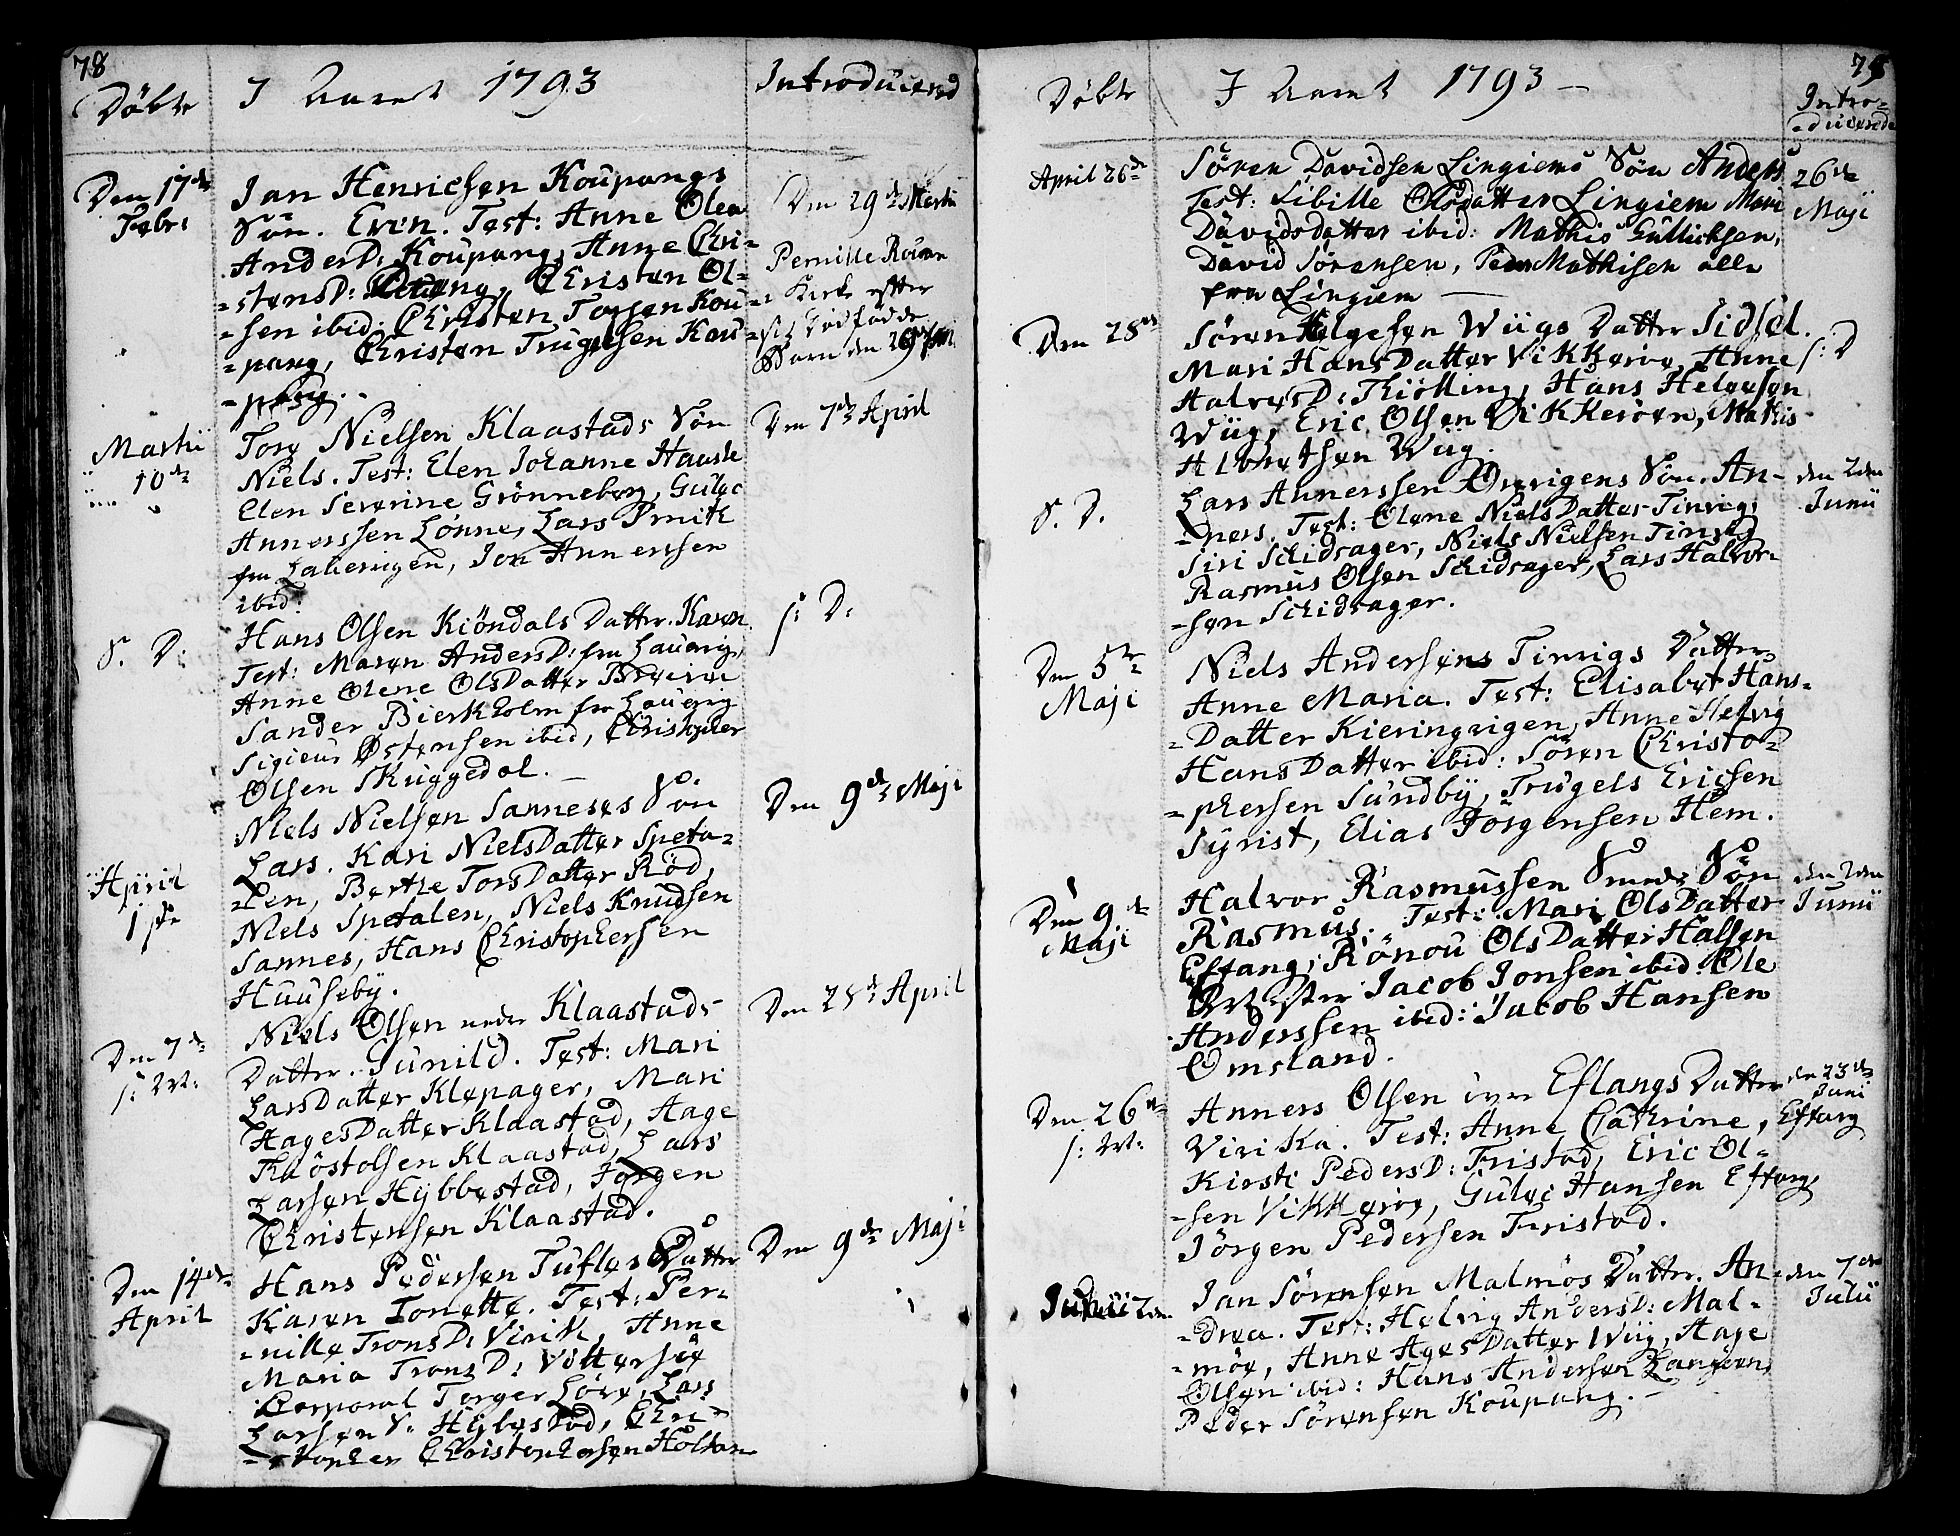 78
Döbte
I Aaret 1793
Introducered
Den 17de
Febr:
Jan Henrichsen Koupangs
Sön. Even. Test: Anne Olea
AndersD: Koupang, Anne Chri-
-stensD: Christen Ol-
-sen ibid: Christen Torsen Kou-
-pang, Christen Trugelsen Kou-
-pang.
Den 29de Martii
Pernille
Kirke efter
dödfödde
Barn den
Martii
10de
Tory Nielsen Klaastads Sön
Niels. Test: Elen Johanne Hausle
Elen Severine Grönneberg, Gulec
Annerssen Lönne, Lars Smith
fra Lauervigen, Jon Annerssen
ibid:
Den 7de April
S. D:
Hans Olsen Kiöndals Datter. Karen
Test: Maren AndersD: fra Laurvig,
Anne Olene OlsDatter
Sander Bierkholm fra Lauervig
Östensen ibid, Christopher
Olsen Skuggedal.
s: D:
April
1ste
Niels Nielsen Sanneses Sön
Lars. Kari NielsDatter Speta-
-len, Berthe TorsDatter Röd,
Niels Spetalen, Niels Knudsen
Sannes, Hans Christophersen
Huuseby.
Den 9de Maji
Den 7de
s: M:
Niels Olsen neder Klaastads
Datter. Gunild. Test: Mari
LarsDatter Klepager, Mari
HagesDatter Klaastad, Aage
Thiöstolsen Klaastad, Lars
Larsen Hybbestad, Jörgen
Christensen Klaastad.
Den 28de April
Den 14de
April
Hans Pedersen Tuftes Datter
Karen Tonette. Test: Per-
-nille TronsD: Virik, Anne
Maria TronsD: Vittersöe
Corporal Torger Löve, Lars
Larsen S: Hybestad, Chri-
-stopher Christophersen Holtan
Den 9de Maji
79
Döbte
I Aaret 1793
Intro-
-ducerede
April 26de
Sören Davidsen Lingiems Sön Anders
Test: Sibille Olsdatter Lingiem Mari
Davidsdatter ibid: Mathis Gullichsen,
David Sörensen, Peder Mathisen alle
fra Lingiem
26de
Maji
Den 28de
Sören Helgesen Wiigs Datter Sidsel.
Mari HansDatter Vikkeröe, Anne
HalvorsD: Thiölling, Hans Helgesen
Wiig, Eric Olsen Vikkeröen, Mathis
Albretsen Wiig.
s: D
S. D.
Lars Annerssen Öwrigens Sön. An-
-ners. Test: Olene NielsDatter Tinvig,
Siri Schidsager, Niels Nielsen Tinvig
Rasmus Olsen Schidsager, Lars Halvor-
-sen Schidsager.
den 2den
Junii
Den 5te
Maji
Niels Andersens Tinvigs Datter
Anne Maria. Test: Elisabet Hans-
-Datter Kieringvigen, Anne Helvig
HansDatter ibid: Sören Christo-
-phersen Sundby, Trugels Ericsen
Syrist, Elias Jörgensen Hem.
Den 9de
Maji
Halvor Rasmussen Smeds Sön
Rasmus. Test: Mari OlsDatter
Eftang, Rönou OlsDatter Halsen
Jacob Jonsen ibid: Ole
Anderssen ibid: Jacob Hansen
Omsland.
den 2den
Junii
Den 26de
s: M:
Anners Olsen öwre Eftangs Datter
Virika. Test: Anne Cathrine,
Kirsti PedersD: Fristad, Eric Ol-
-sen Vikkeröe, Guleg Hansen Eftang,
Jörgen Pedersen Fristad.
den 23de
Juni
Eftang
Junii 2den
Jan Sörensen Malmös Datter. An-
-drea. Test: Helvig AndersD: Mal-
-möe, Anne AgesDatter Wiig, Aage
Olsen ibid: Hans Andersen Langöen,
Peder Sörensen Koupang.
den 7de
Julii